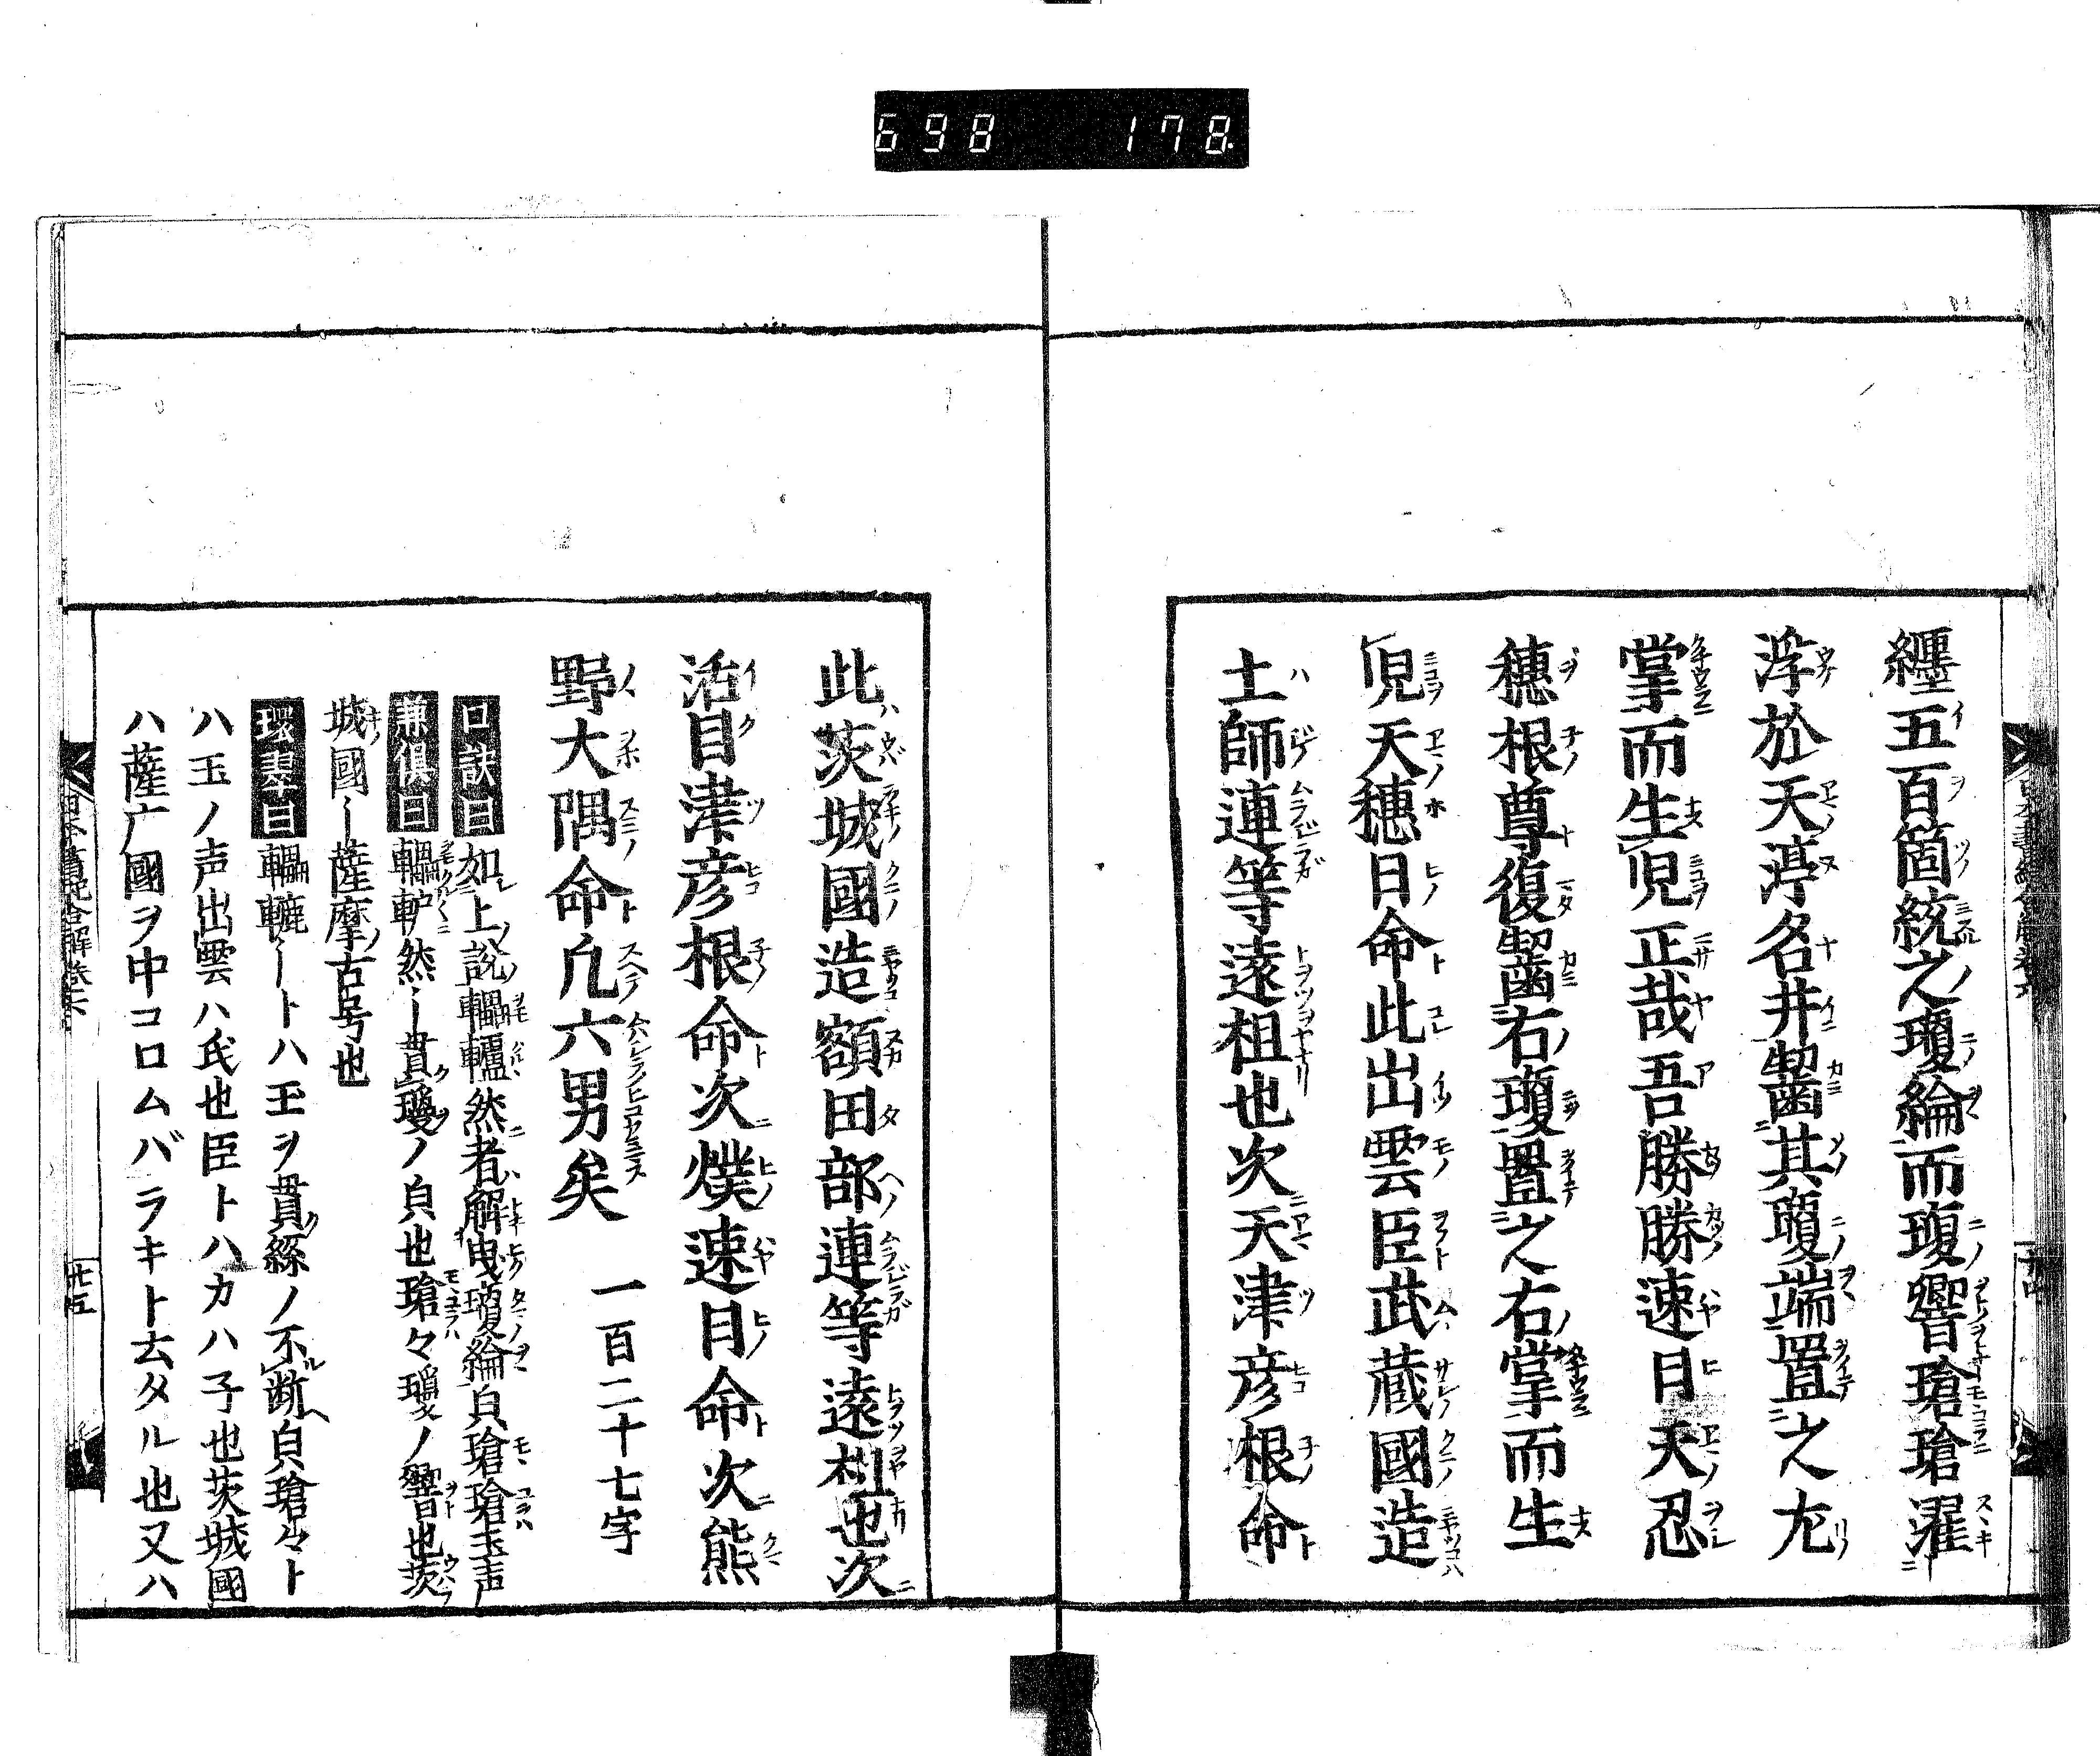 698 178
纒五百箇統之瓊綸而瓊響瑲瑲濯
浮於天渟名井齧其瓊端置之尤
掌而生児正哉吾勝勝速日天忍
穂根尊復齧右瓊置之右掌而生
児天穂日命此出雲臣武蔵國造
土師連等遠祖也次天津彦根命
此茨城國造額田部連等遠祖也次
活目津彦根命次熯速日命次熊
野大隅命凡六男矣 一百二十七字
口訣曰如上説轠轤然者解曳瓊綸皃瑲瑲玉声
兼倶曰轠轳然〡貫瓊ノ皃也瑲々瓊ノ響也茨
城國〡薩摩ノ古号也
環翠曰轠轆〡トハ玉ヲ貫絲ノ不断皃瑲々ト
ハ玉ノ声出雲ハ氏也臣トハカハ子也茨城國
ハ薩广國ヲ中コロムバラキト云タル也又ハ